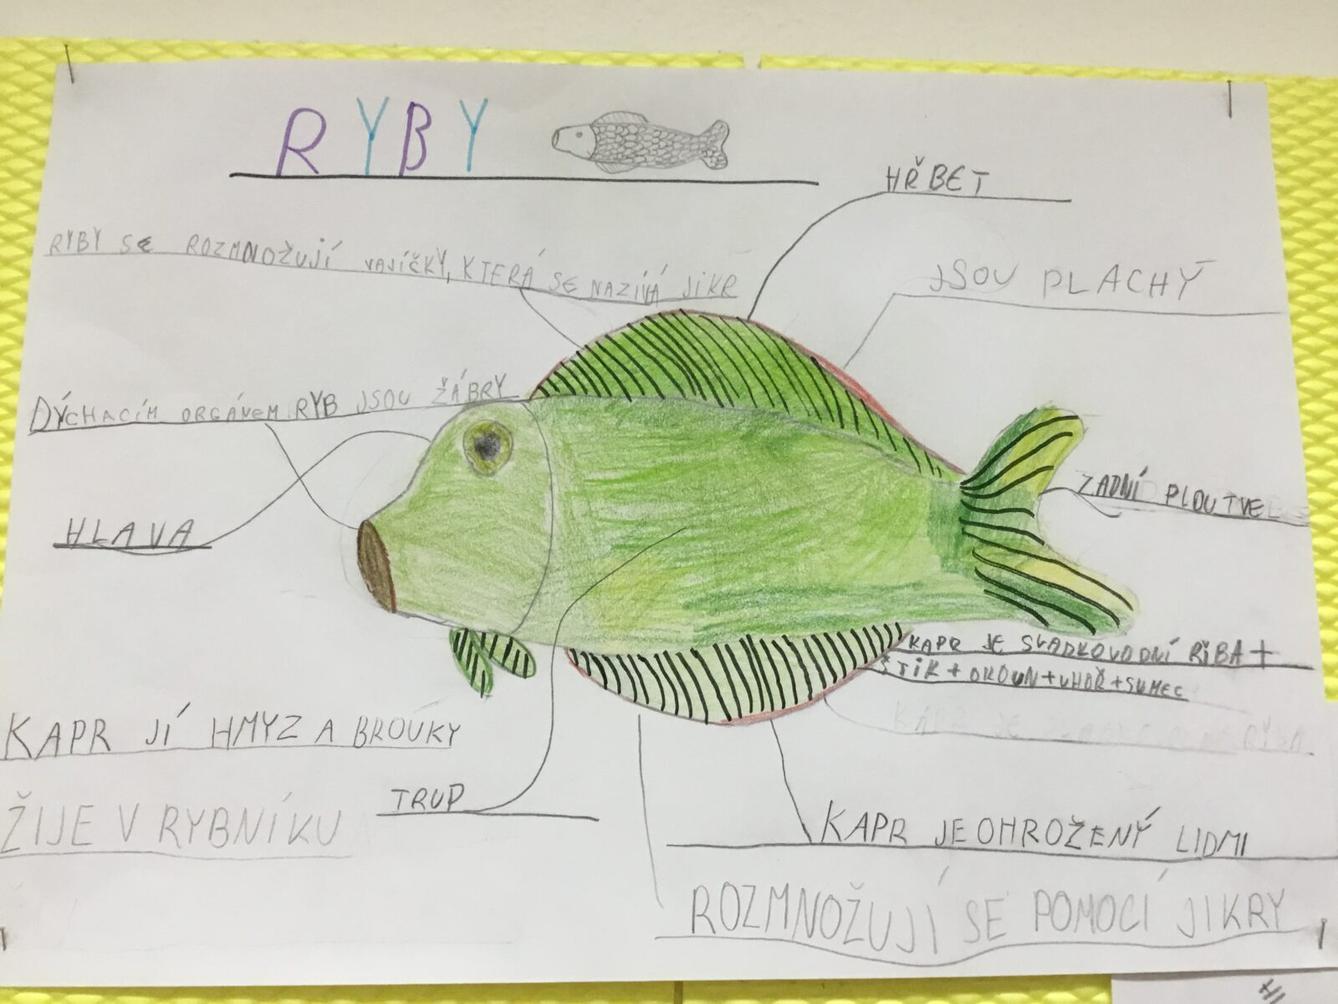 RYBY
HŘBET
RYBY SE ROZMNOŽUJÍ VAJÍČKY, KTERÁ SE NAZÍVÁ JIKR
JSOU PLACHÝ
DÝCHACÍM ORGÁNEM RYB JSOU ŽÁBRY
ZADNÍ PLOUTVE
HLAVA
KAPR JE SLADKOVODNÍ RIBA+
ŠTIK+OKOUN+UHOŘ+SUMEC
KAPR JE
KAPR JÍ HMYZ A BROUKY
TRUP
ŽIJE V RYBNÍKU
KAPR JE OHROŽENÝ LIDMI
ROZMNOŽUJÍ SE POMOCÍ JIKRY